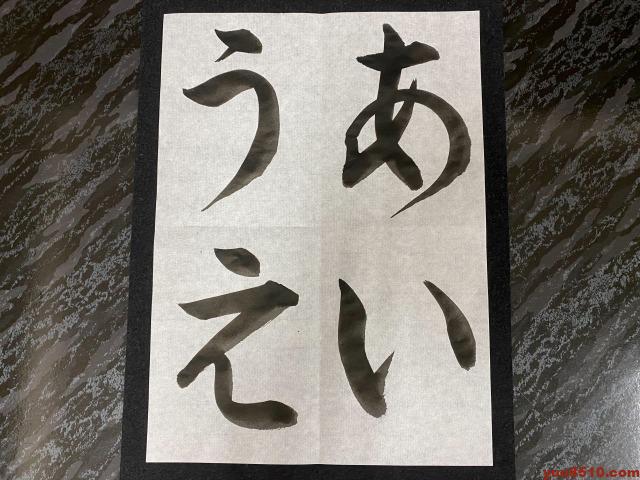 あい
うえ
you8610.com